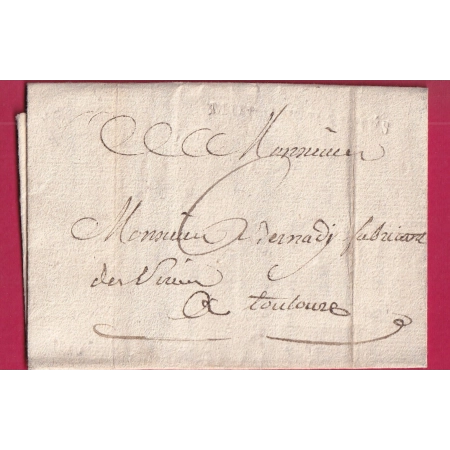 Monsieur
Monsieur Dernadj fabricant
des
A toulouse